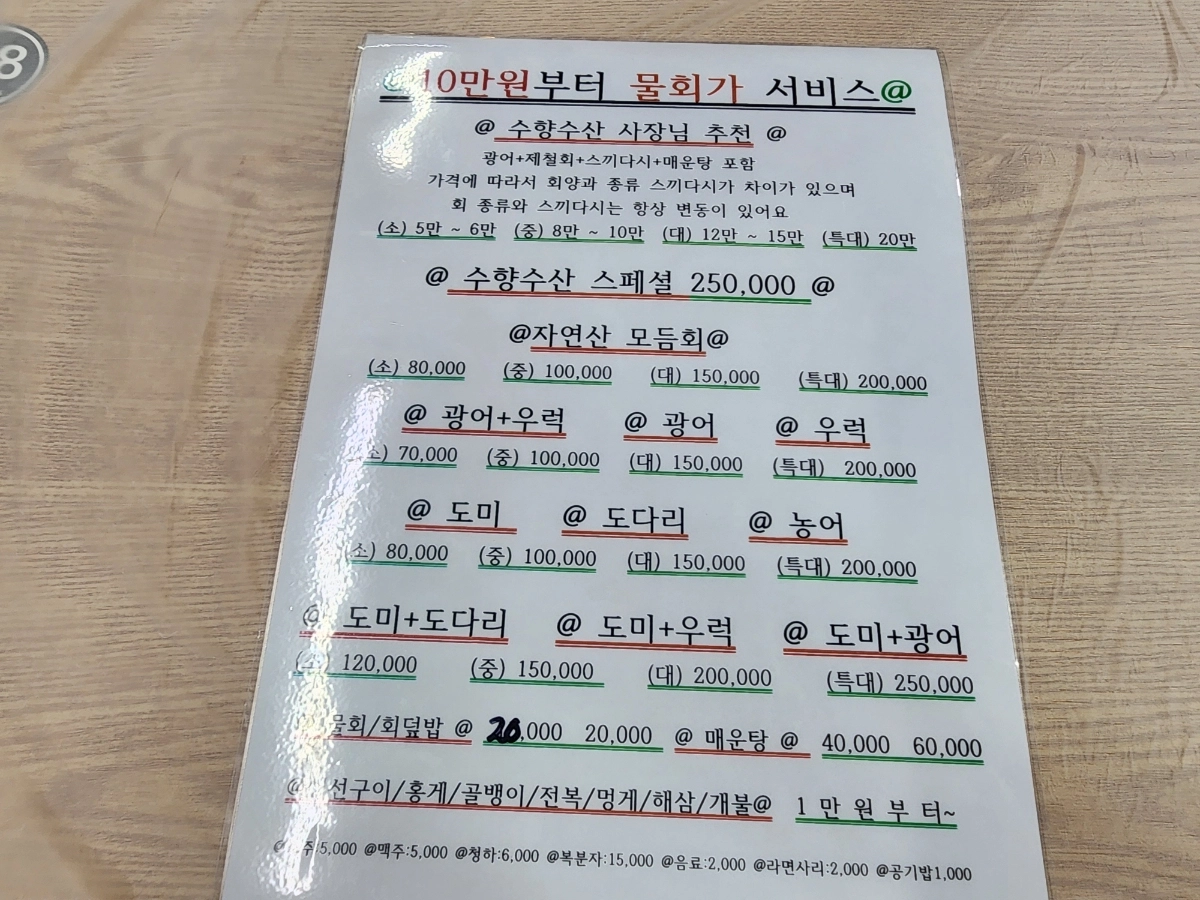 8
@10만원부터 물회가 서비스@
@ 수향수산 사장님 추천 @
광어+제철회+스끼다시+매운탕 포함
가격에 따라서 회양과 종류 스끼다시가 차이가 있으며
회 종류와 스끼다시는 항상 변동이 있어요
(소) 5만 ~ 6만 (중) 8만 ~ 10만 (대) 12만 ~ 15만 (특대) 20만
@ 수향수산 스페셜 250,000 @
@자연산 모듬회@
(소) 80,000 (중) 100,000 (대) 150,000 (특대) 200,000
@ 광어+우럭 @ 광어 @ 우럭
(소) 70,000 (중) 100,000 (대) 150,000 (특대) 200,000
@ 도미 @ 도다리 @ 농어
(소) 80,000 (중) 100,000 (대) 150,000 (특대) 200,000
@ 도미+도다리 @ 도미+우럭 @ 도미+광어
(소) 120,000 (중) 150,000 (대) 200,000 (특대) 250,000
물회/회덮밥 @ 20,000 20,000 @ 매운탕 @ 40,000 60,000
@ 선구이/홍게/골뱅이/전복/멍게/해삼/개불@ 1 만 원 부 터~
주:5,000 @맥주:5,000 @청하:6,000 @복분자:15,000 @음료:2,000 @라면사리:2,000 @공기밥1,000